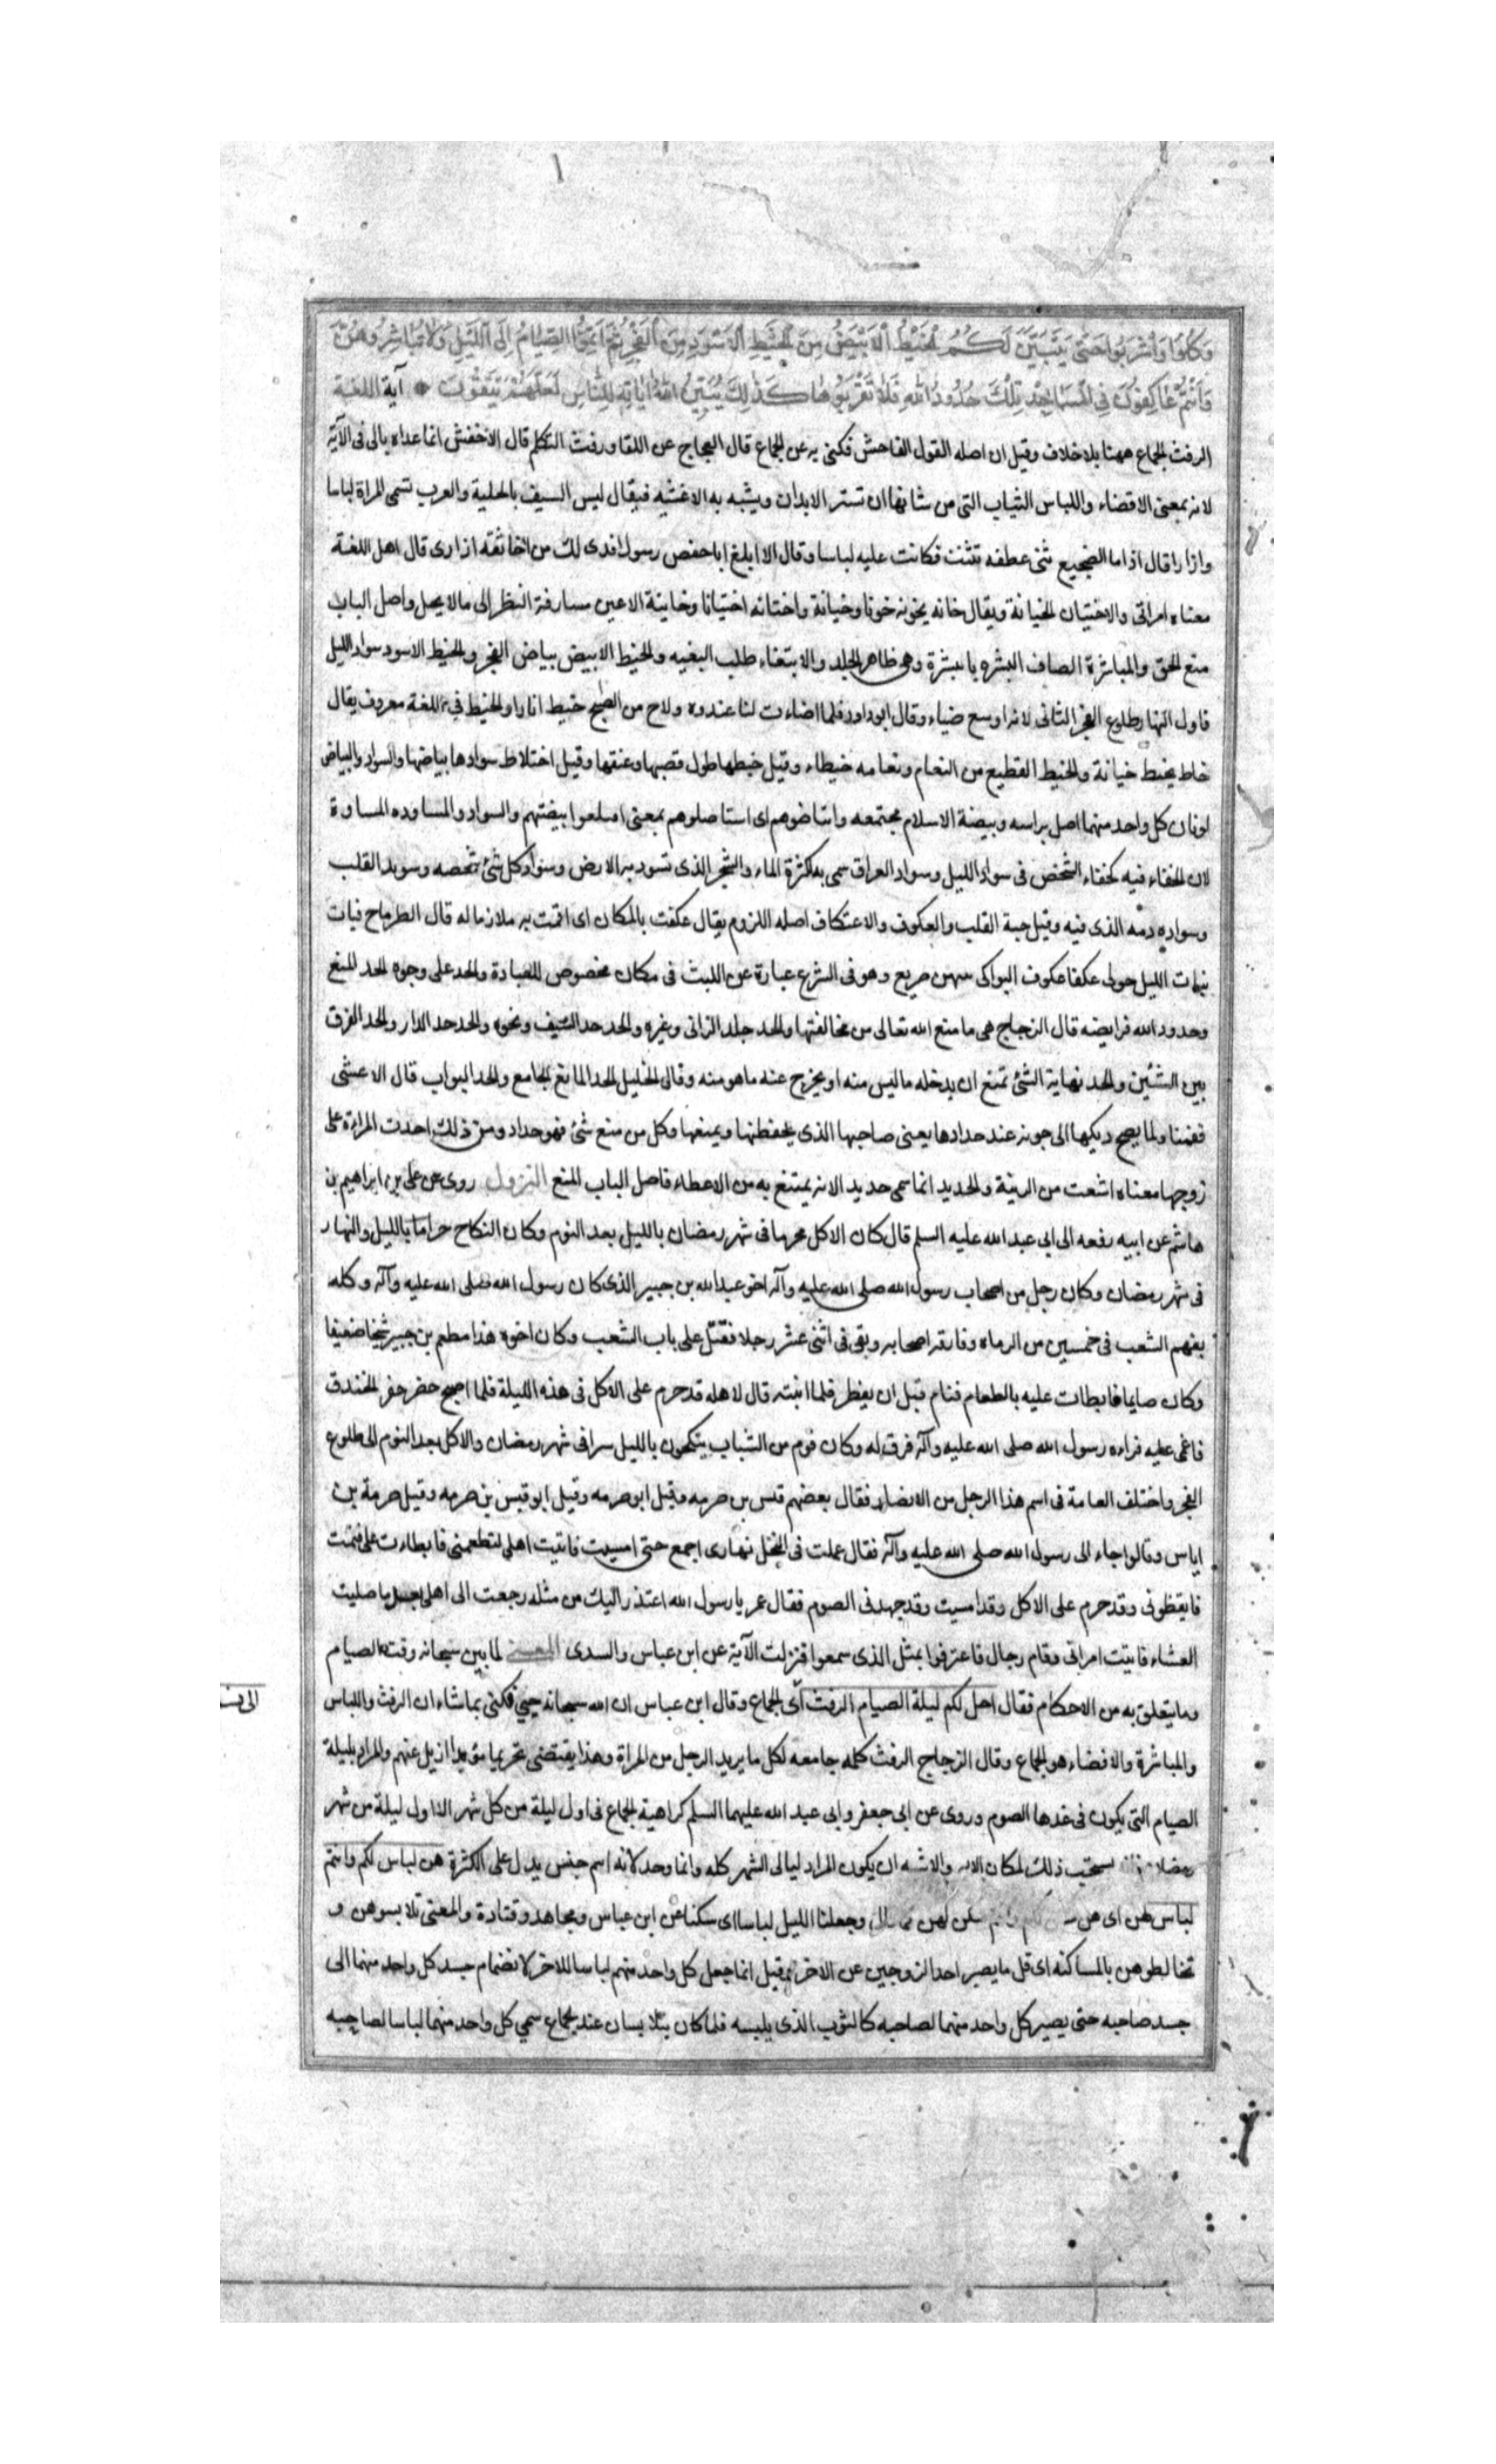 وَكُلُوا وَاشْرَبُوا حَتّى يَتَبَيَّنَ لَكُمُ الْخَيْطُ الْاَبْيَضُ مِنَ الْخَيْطِ الْاَسْوَدِ مِنَ الْفَجْرِ ثُمَّ اَتِمُّوا الصِّيَامَ اِلَى اللَّيْلِ وَلَا تُبَاشِرُوهُنَّ
وَاَنْتُمْ عَاكِفُونَ فِي الْمَسَاجِدِ تِلْكَ حُدُودُ اللهِ فَلَا تَقْرَبُوهَا كَذلِكَ يُبَيِّنُ اللهُ ايَاتِهِ لِلنَّاسِ لَعَلَّهُمْ يَتَّقُونَ آية اللغة
الرفث الجماع ههنا بلا خلاف وقيل ان اصله القول الفاحش فكنى به عن الجماع قال العجاج عن اللقا ورفث التكلم قال الاخفش انما عداه بالى فى الآية
لانه بمعنى الافضاء واللباس الثياب التى من شانها ان تستر الابدان ويشبه به الاغشيه فيقال لبس السيف بالحلية والعرب تسمى المراة لباسا
وازارا قال اذا ما الضجيع ثنى عطفه تثنت فكانت عليه لباسا وقال الا ابلغ اباحفص رسولا فدى لك من اخاثقة ازارى قال اهل اللغة
معناه امراتى والاختيان الخيانة ويقال خانه يخونه خونا وخيانة واختانه اختيانا وخاينة الاعين مسارقة النظر الى مالا يحل واصل الباب
منع الحق والمباشرة الصاق البشره بالبشرة وهى ظاهر الجلد والابتغاء طلب البغيه والخيط الابيض بياض الفجر والخيط الاسود سواد الليل
فاول النهار طلوع الفجر الثانى لانه اوسع ضياء وقال ابوداود فلما اضاءت لنا غدوه ولاح من الصبح خيط انارا والخيط فى اللغة معروف يقال
خاط يخيط خياطة والخيط القطيع من النعام ونعامه خيطاء وقيل خيطها طول قصبها وعنقها وقيل اختلاط سوادها ببياضها والسواد والبياض
لونان كل واحد منهما اصل براسه وبيضة الاسلام مجتمعه وابتاضوهم اى استاصلوهم بمعنى اقتلعوا بيضتهم والسواد والمساوده المساوة
لان الخفاء فيه كخفاء الشخص فى سواد الليل وسواد العراق سمى به لكثرة الماء والشجر الذى تسود به الارض وسواد كل شئ شخصه وسويد القلب
وسواده دمه الذى فيه وقيل حبة القلب والعكوف والاعتكاف اصله اللزوم يقال عكفت بالمكان اى اقمت به ملازما له قال الطرماح فبات
بنات الليل حولى عكفا عكوف البواكى بينهن صريع وهو فى الشرع عبارة عن اللبث فى مكان مخصوص للعبادة والحد على وجوه الحد المنع
وحدود الله فرايضه قال الزجاج هى ما منع الله تعالى من مخالفتها والحد جلد الزانى وغيره والحد حد السيف ونحوه والحد حد الدار والحد الفرق
بين الشئين والحد نهاية الشئ تمنع ان يدخله ما ليس منه او يخرج عنه ما هو منه وقال الخليل الحد المانع الجامع والحد البواب قال الاعشى
فقمنا ولما يصح ديكها الى جونه عند حدادها يعنى صاحبها الذى يحفظها ويمنعها وكل من منع شئ فهو حداد ومن ذلك احدت المراءة على
زوجها معناه امتنعت من الزينة والحديد انما سمى حديد الانه يمتنع به من الاعطاء فاصل الباب المنع النزول روى عن على بن ابراهيم بن
هاشم عن ابيه رفعه الى ابى عبد الله عليه السلم قال كان الاكل محرما فى شهر رمضان بالليل بعد النوم وكان النكاح حراما بالليل والنهار
فى شهر رمضان وكان رجل من اصحاب رسول الله صلى الله عليه وآله اخو عبد الله بن جبير الذى كان رسول الله صلى الله عليه وآله وكله
بفهم الشعب فى خمسين من الرماه وفارقه اصحابه وبقى فى اثنى عشر رجلا فقتل على باب الشعب وكان اخوه هذا مطعم بن جبير شيخا ضعيفا
وكان صايما فابطات عليه بالطعام فنام قبل ان يفطر فلما انتبه قال لاهله قد حرم على الاكل فى هذه الليلة فلما اصبح حضر حفر الخندق
فاغمى عليه فراءه رسول الله صلى الله عليه وآله فرق له وكان قوم من الشباب ينكحون بالليل سرا فى شهر رمضان والاكل بعد النوم الى طلوع
الفجر واختلف العامة فى اسم هذا الرجل من الانصار فقال بعضهم قيس بن صرمه وقيل ابو صرمه وقيل ابو قيس بن صرمه وقيل صرمة بن
اياس وقالوا جاء الى رسول الله صلى الله عليه وآله فقال عملت فى النخل نهارى اجمع حتى امسيت فاتيت اهلى لتطعمنى فابطاءت على فنمت
فايقظونى وقد حرم على الاكل وقد امسيت وقد جهدنى الصوم فقال عمر يا رسول الله اعتذر اليك من مثله رجعت الى اهلى بعد ما صليت
العشاء فاتيت امراتى وقام رجال فاعترفوا بمثل الذى سمعوا فنزلت الآية عن ابن عباس والسدى المعنى لما بين سبحانه وقت الصيام
وما يتعلق به من الاحكام فقال احل لكم ليلة الصيام الرفث اى الجماع وقال ابن عباس ان الله سبحانه حيي فكنى بما شاء ان الرفث واللباس
والمباشرة والافضاء هو الجماع وقال الزجاج الرفث كلمه جامعه لكل ما يريد الرجل من المراة وهذا يقتضى تحريما متقدما ازيل عنهم والمراد بليلة
الصيام التى يكون فى غدها الصوم وروى عن ابى جعفر وابى عبد الله عليهما السلم كراهية الجماع فى اول ليلة من كل شهر الا اول ليلة من شهر
رمضان يستحب ذلك لمكان الايه والاشبه ان يكون المراد ليالى الشهر كله وانما وحد لانه اسم جنس يدل على الكثرة هن لباس لكم وانتم
لباس لهن اى هن وجعلنا الليل لباسا اى سكنا عن ابن عباس ومجاهد وقتادة والمعنى تلابسوهن و
تخالطوهن بالمساكنه اى قل ما يصبر احد الزوجين عن الاخر وقيل انما جعل كل واحد منهم لباسا للاخر لانضمام جسد كل واحد منهما الى
جسد صاحبه حتى يصير كل واحد منهما لصاحبه كالثوب الذى يلبسه فلما كان يتلابسان عند الجماع سمى كل واحد منهما لباسا لصاحبه